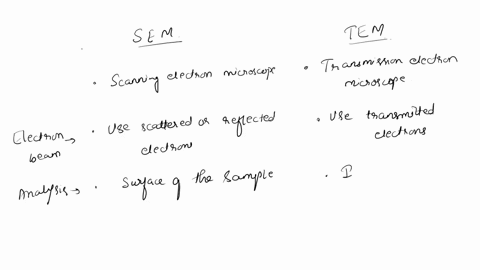 SEM TEM
• Scanning electron microscope • Transmission electron
microscope
Electron → • Use scattered or reflected • Use transmitted
beam electrons electrons
Analysis → • Surface of the sample • I